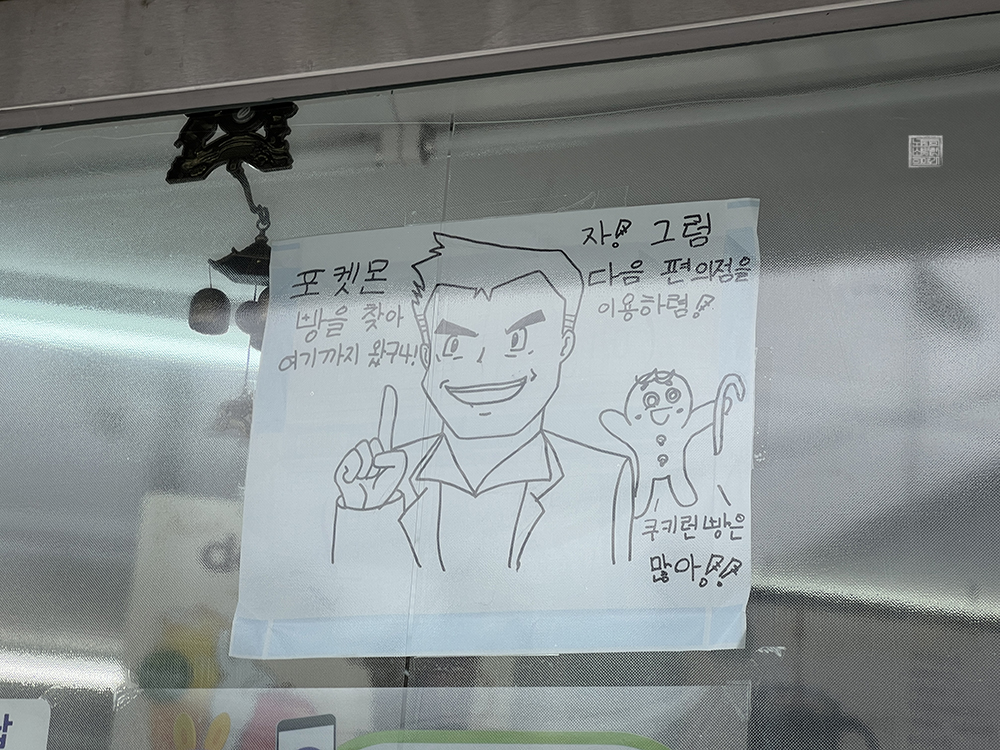 포켓몬
빵을 찾아
여기까지 왔구나!
자! 그럼
다음 편의점을
이용하렴!
쿠키런 빵은
많아!!